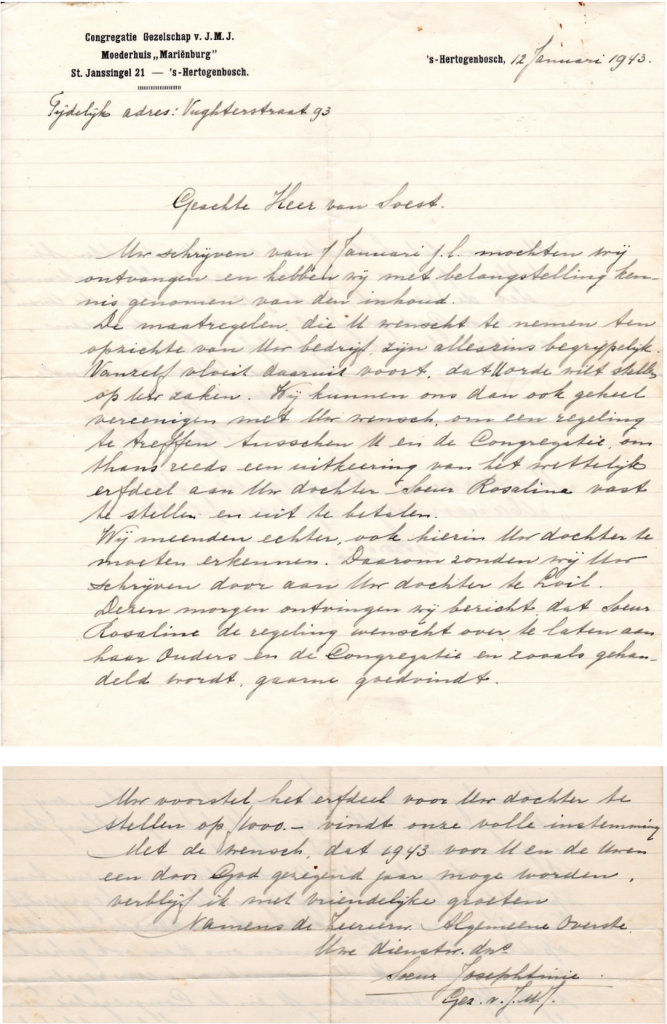 Congregatie Gezelschap v. J. M. J.
Moederhuis „Mariënburg"
St. Janssingel 21 — 's-Hertogenbosch.
's-Hertogenbosch, 12 Januari 1943.
Tijdelijk adres: Vughterstraat 93
Geachte Heer van Soest.
Uw schrijven van 7 Januari j.l. mochten wij
ontvangen en hebben wij met belangstelling ken-
nis genomen van den inhoud.
De maatregelen, die U wenscht te nemen ten
opzichte van Uw bedrijf, zijn alleszins begrijpelijk.
Vanzelf vloeit daaruit voort, dat U orde wilt stellen
op Uw zaken. Wij kunnen ons dan ook geheel
vereenigen met Uw wensch, om een regeling
te treffen tusschen U en de Congregatie, om
thans reeds een uitkeering van het wettelijk
erfdeel aan Uw dochter Soeur Rosalina vast
te stellen en uit te betalen.
Wij meenden echter, ook hierin Uw dochter te
moeten erkennen. Daarom zonden wij Uw
schrijven door aan Uw dochter te Loil.
Dezen morgen ontvingen wij bericht, dat Soeur
Rosaline de regeling wenscht over te laten aan
haar Ouders en de Congregatie en zooals gehan-
deld wordt, gaarne goedvindt.
Uw voorstel, het erfdeel voor Uw dochter te
stellen op ƒ1000.— vindt onze volle instemming
Met de wensch, dat 1943 voor U en de Uwen
een door God gezegend jaar moge worden,
verblijf ik met vriendelijke groeten
Namens de Zeereerw. Algemeene Overste.
Uwe dienstw. dnes
Soeur
Gez. v. J.M.J.